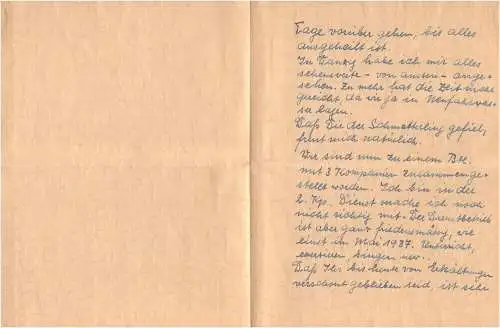 Tage vorüber gehen, bis alles
ausgeheilt ist.
In Danzig habe ich mir alles
sehenswerte - von aussen - ange-
sehen. Zu mehr hat die Zeit nicht
gereicht, da wir ja in Neufahrwas-
ser lagen.
Daß Dir der Schmetterling gefiel,
freut mich natürlich.
Wir sind nun zu einem Btl.
mit 3 Kompanien zusammenge-
stellt worden. Ich bin in der
2. Kp. Dienst mache ich noch
nicht richtig mit. Der Dienstbetrieb
ist aber ganz friedensmäßig, wie
einst im Mai 1937. Unterricht,
exerzieren, singen usw..
Daß Ihr bis heute von Erkältungen
verschont geblieben seid, ist sehr